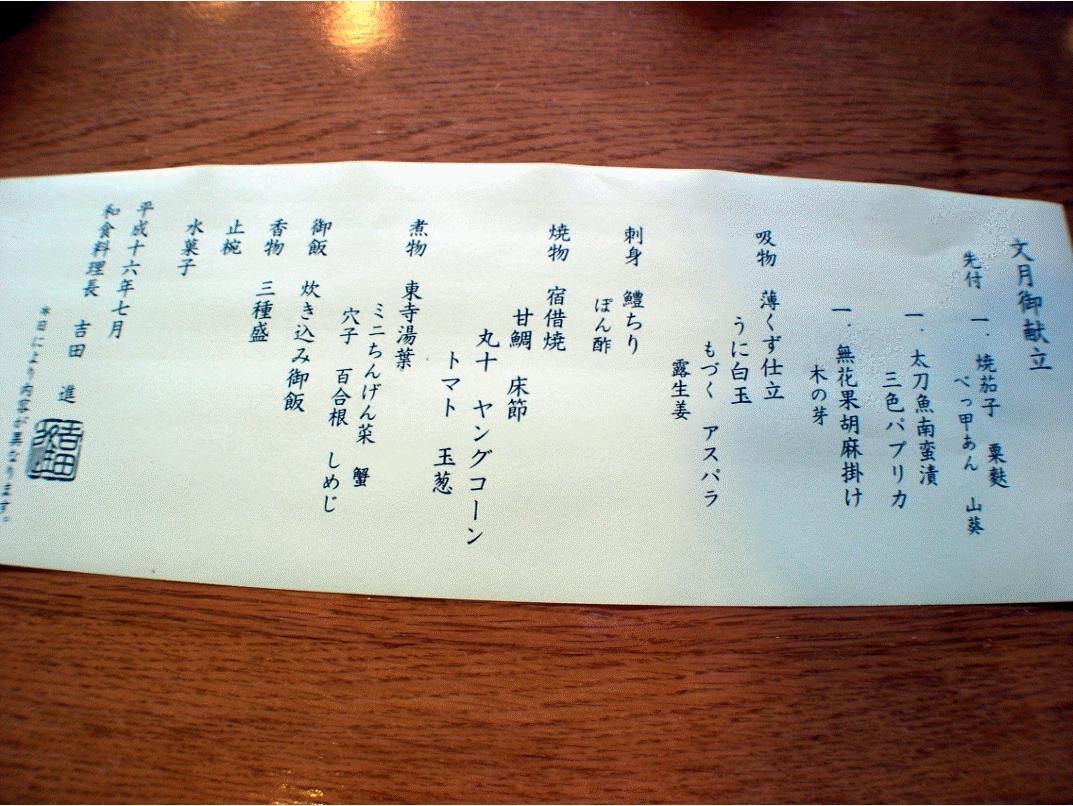 文月御献立
先付 一．焼茄子 粟麩
べっ甲あん 山葵
一．太刀魚南蛮漬
三色パプリカ
一．無花果胡麻掛け
木の芽
吸物 薄くず仕立
うに白玉
もづく アスパラ
露生姜
刺身 鱧ちり
ぽん酢
焼物 宿借焼
甘鯛 床節
丸十 ヤングコーン
トマト 玉葱
煮物 東寺湯葉
ミニちんげん菜 蟹
穴子 百合根 しめじ
御飯 炊き込み御飯
香物 三種盛
止椀
水菓子
平成十六年七月
和食料理長 吉田 進
本日により内容が異なります。